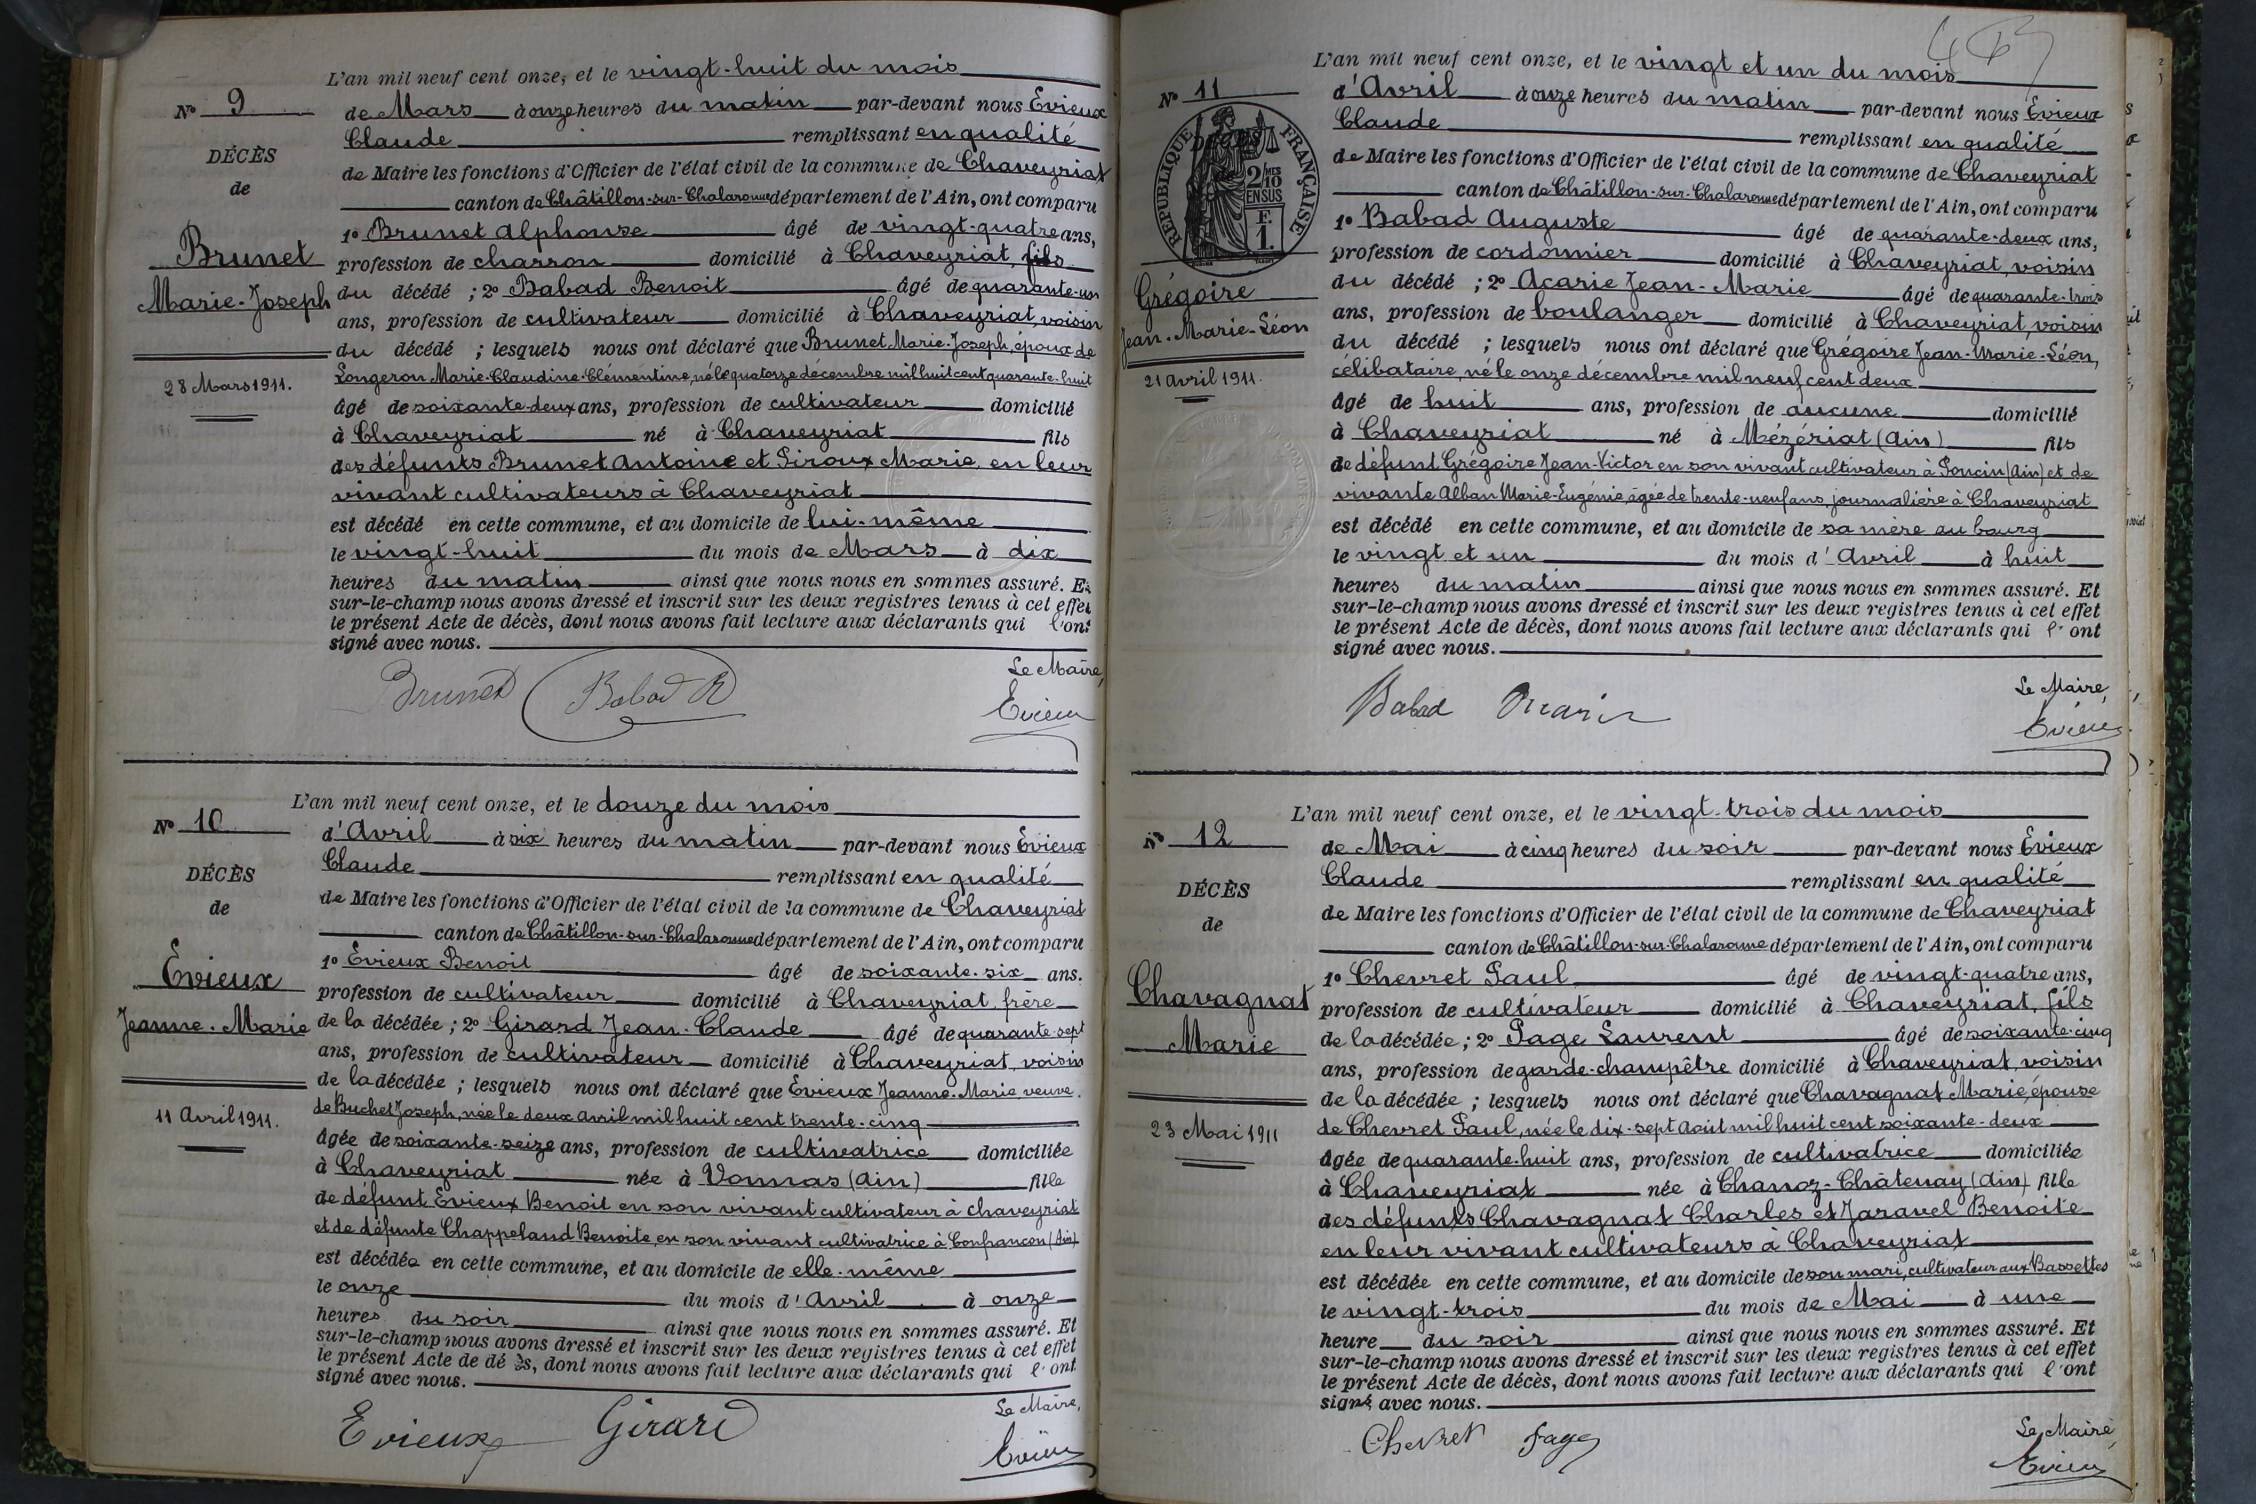 L'an mil neuf cent onze, et le vingt-huit du mois
N° 9
de Mars à onze heures du matin par-devant nous Evieux
Claude remplissant en qualité
DÉCÈS
de Maire les fonctions d'Officier de l'état civil de la commune de Chaveyriat
de
canton de Châtillon-sur-Chalaronne département de l'Ain, ont comparu
1° Brunet Alphonse âgé de vingt-quatre ans,
Brunet
profession de charron domicilié à Chaveyriat, fils
Marie-Joseph
du décédé ; 2° Babad Benoit âgé de quarante-un
ans, profession de cultivateur domicilié à Chaveyriat, voisin
du décédé ; lesquels nous ont déclaré que Brunet Marie-Joseph, époux de
28 Mars 1911.
Longeron Marie-Claudine-Clémentine, né le quatorze décembre mil huit cent quarante-huit
âgé de soixante-deux ans, profession de cultivateur domicilié
à Chaveyriat né à Chaveyriat fils
des défunts Brunet Antoine et Piroux Marie en leur
vivant cultivateurs à Chaveyriat
est décédé en cette commune, et au domicile de lui-même
le vingt-huit du mois de Mars à dix
heures du matin ainsi que nous nous en sommes assuré. Et
sur-le-champ nous avons dressé et inscrit sur les deux registres tenus à cet effet
le présent Acte de décès, dont nous avons fait lecture aux déclarants qui l'ont
signé avec nous.
Le Maire,
Brunet Babad B Evieux
L'an mil neuf cent onze, et le douze du mois
N° 10
d'Avril à six heures du matin par-devant nous Evieux
Claude remplissant en qualité
DÉCÈS
de Maire les fonctions d'Officier de l'état civil de la commune de Chaveyriat
de
canton de Châtillon-sur-Chalaronne département de l'Ain, ont comparu
1° Evieux Benoit âgé de soixante-six ans.
Evieux
profession de cultivateur domicilié à Chaveyriat, frère
Jeanne-Marie
de la décédée ; 2° Girard Jean-Claude âgé de quarante-sept
ans, profession de cultivateur domicilié à Chaveyriat, voisin
de la décédée ; lesquels nous ont déclaré que Evieux Jeanne-Marie veuve
11 Avril 1911.
de Buchet Joseph, née le deux avril mil huit cent trente-cinq
âgée de soixante-seize ans, profession de cultivatrice domiciliée
à Chaveyriat née à Vonnas (Ain) fille
de défunt Evieux Benoit en son vivant cultivateur à Chaveyriat
et de défunte Chappeland Benoite, en son vivant cultivatrice à Confrançon (Ain)
est décédée en cette commune, et au domicile de elle-même
le onze du mois d'Avril à onze
heures du soir ainsi que nous nous en sommes assuré. Et
sur-le-champ nous avons dressé et inscrit sur les deux registres tenus à cet effet
le présent Acte de dé ès, dont nous avons fait lecture aux déclarants qui l'ont
signé avec nous.
Le Maire,
Evieux Girard Evieux
L'an mil neuf cent onze, et le vingt et un du mois
N° 11
d'Avril à onze heures du matin par-devant nous Evieux
Claude remplissant en qualité
DÉCÈS
RÉPUBLIQUE FRANÇAISE
2/10 MES
EN SUS
F.
1.
de Maire les fonctions d'Officier de l'état civil de la commune de Chaveyriat
canton de Châtillon-sur-Chalaronne département de l'Ain, ont comparu
1° Babad Auguste âgé de quarante-deux ans,
profession de cordonnier domicilié à Chaveyriat, voisin
Grégoire
du décédé ; 2° Acarie Jean-Marie âgé de quarante-trois
Jean-Marie-Léon
ans, profession de boulanger domicilié à Chaveyriat, voisin
du décédé ; lesquels nous ont déclaré que Grégoire Jean-Marie-Léon,
21 Avril 1911.
célibataire, né le onze décembre mil neuf cent deux
âgé de huit ans, profession de aucune domicilié
à Chaveyriat né à Mézériat (Ain) fils
de défunt Grégoire Jean-Victor en son vivant cultivateur à Poncin (Ain) et de
vivante Alban Marie-Eugénie, âgée de trente-neuf ans, journalière à Chaveyriat
est décédé en cette commune, et au domicile de sa mère au bourg
le vingt et un du mois d'Avril à huit
heures du matin ainsi que nous nous en sommes assuré. Et
sur-le-champ nous avons dressé et inscrit sur les deux registres tenus à cet effet
le présent Acte de décès, dont nous avons fait lecture aux déclarants qui l'ont
signé avec nous.
Le Maire,
Babad Acarie Evieux
L'an mil neuf cent onze, et le vingt-trois du mois
N° 12
de Mai à cinq heures du soir par-devant nous Evieux
Claude remplissant en qualité
DÉCÈS
de Maire les fonctions d'Officier de l'état civil de la commune de Chaveyriat
de
canton de Châtillon-sur-Chalaronne département de l'Ain, ont comparu
1° Chevret Paul âgé de vingt-quatre ans,
Chavagnat
profession de cultivateur domicilié à Chaveyriat, fils
Marie
de la décédée ; 2° Page Laurent âgé de soixante-cinq
ans, profession de garde-champêtre domicilié à Chaveyriat, voisin
de la décédée ; lesquels nous ont déclaré que Chavagnat Marie, épouse
23 Mai 1911
de Chevret Paul, née le dix-sept Août mil huit cent soixante-deux
âgée de quarante-huit ans, profession de cultivatrice domiciliée
à Chaveyriat née à Chanoz-Châtenay (Ain) fille
des défunts Chavagnat Charles et Jaravel Benoite
en leur vivant cultivateurs à Chaveyriat
est décédée en cette commune, et au domicile de son mari, cultivateur aux Bassettes
le vingt-trois du mois de Mai à une
heure du soir ainsi que nous nous en sommes assuré. Et
sur-le-champ nous avons dressé et inscrit sur les deux registres tenus à cet effet
le présent Acte de décès, dont nous avons fait lecture aux déclarants qui l'ont
signé avec nous.
Le Maire,
Chevret Page Evieux